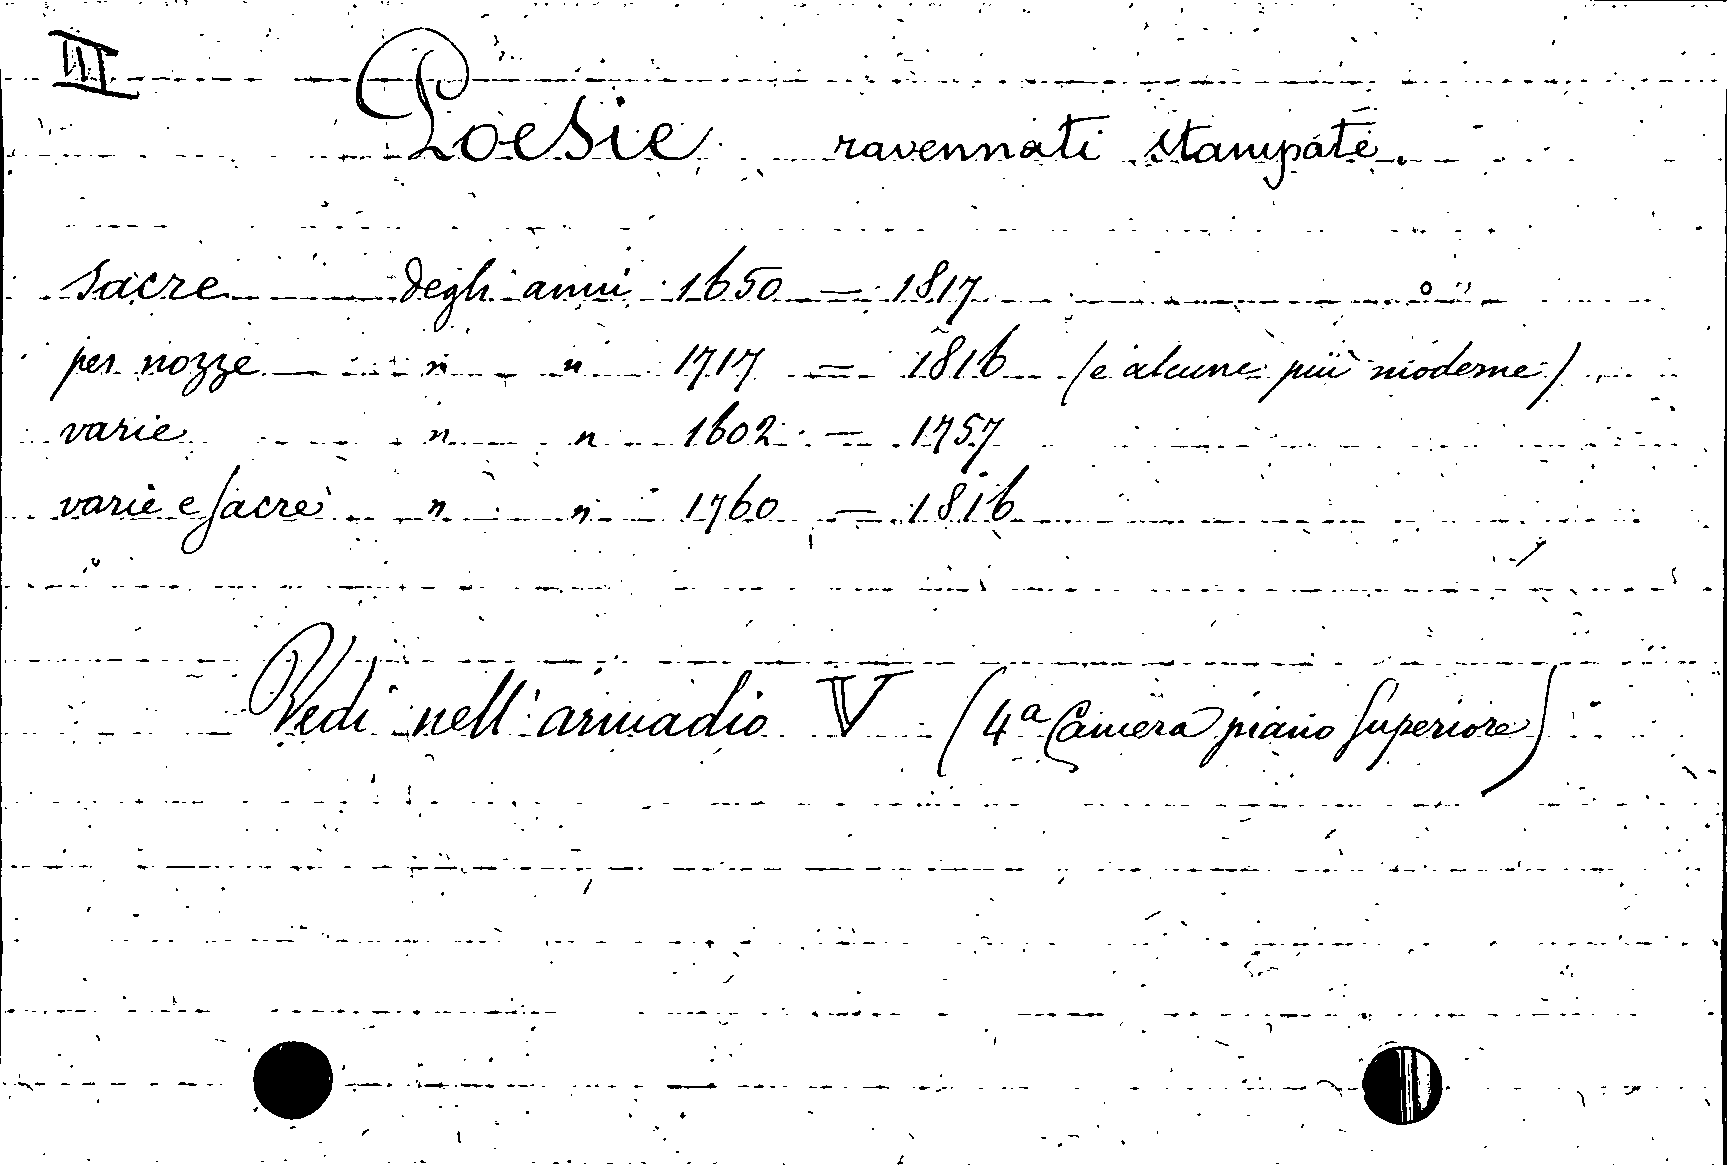 III
Poesie ravennati stampate.
Sacre degli anni 1650 = 1817
per nozze — " " 1717 = 1816 (e alcune più moderne)
varie " " 1602 = 1757
varie e sacre " " 1760 = 1816
Vedi nell'armadio V (4ª Camera piano superiore)